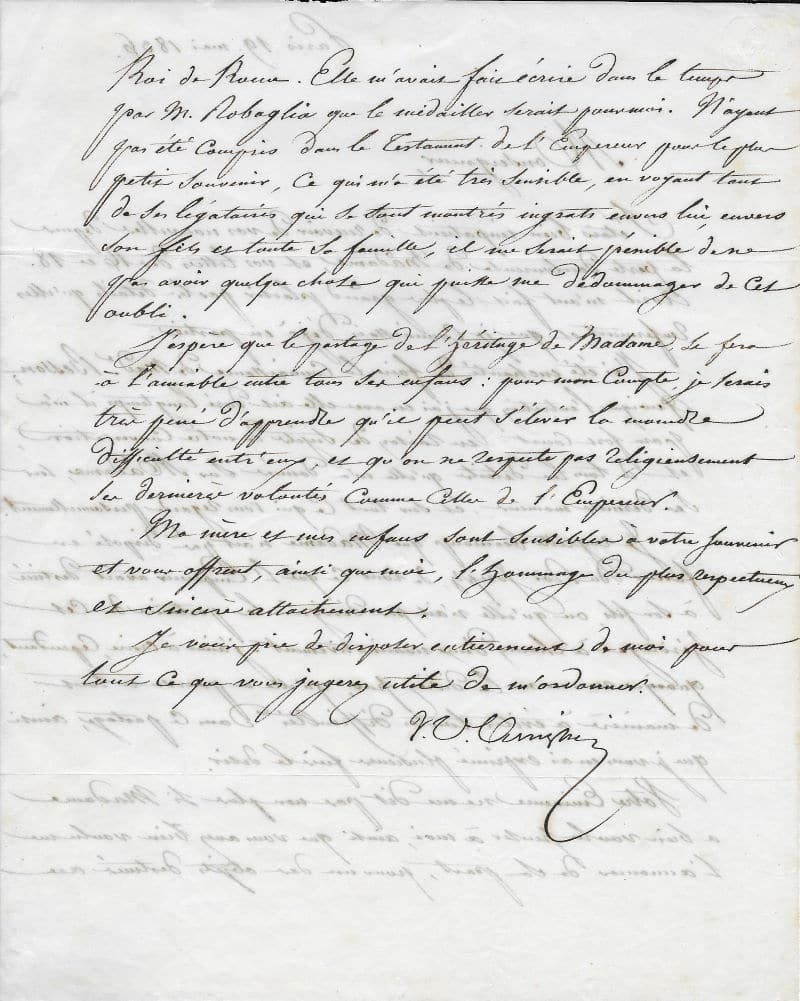 Roi de Rome. Elle m'avait fait écrire dans le temps
par M. Robaglia que le médailler serait pour moi. N'ayant
pas été compris dans le Testament de l'Empereur pour le plus
petit souvenir, ce qui m'a été très sensible, en voyant tant
de ses légataires qui se sont montrés ingrats envers lui, envers
son fils et toute sa famille, il me serait pénible de ne
pas avoir quelque chose qui puisse me dédommager de cet
oubli.
J'espère que le partage de l'héritage de Madame se fera
à l'amiable entre tous ses enfans : pour mon compte, je serais
très péné d'apprendre qu'il peut s'élever la moindre
difficulté entr'eux, et qu'on ne respecte pas religieusement
ses dernières volontés comme celles de l'Empereur.
Ma mère et mes enfans sont sensibles à votre souvenir
et vous offrent, ainsi que moi, l'hommage du plus respectueux
et sincère attachement.
Je vous prie de disposer entièrement de moi pour
tout ce que vous jugerez utile de m'ordonner.